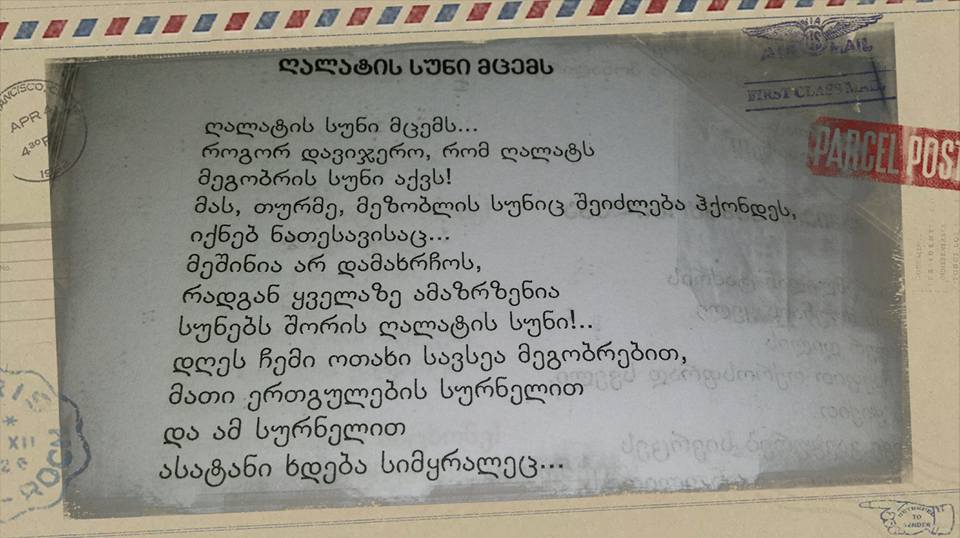 ღალატის სუნი მცემს
ღალატის სუნი მცემს...
როგორ დავიჯერო, რომ ღალატს
მეგობრის სუნი აქვს!
მას, თურმე, მეზობლის სუნიც შეიძლება ჰქონდეს,
იქნებ ნათესავისაც...
მეშინია არ დამახრჩოს,
რადგან ყველაზე ამაზრზენია
სუნებს შორის ღალატის სუნი!..
დღეს ჩემი ოთახი სავსეა მეგობრებით,
მათი ერთგულების სურნელით
და ამ სურნელით
ასატანი ხდება სიმყრალეც...
AIR MAIL
FIRST CLASS MAIL
PARCEL POST
APR
430P
XII
RETURNED
TO
SENDER